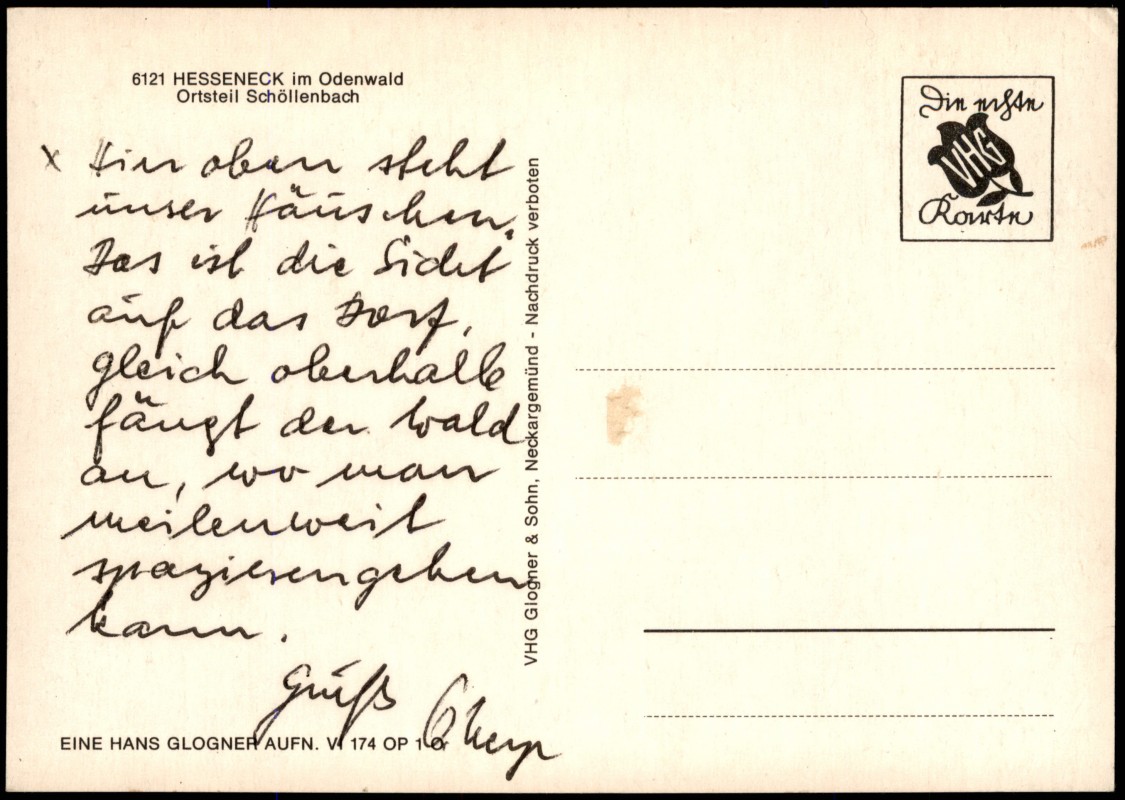 6121 HESSENECK im Odenwald
Ortsteil Schöllenbach
x Hier oben steht
unser Häuschen.
Das ist die Sicht
auf das Dorf,
gleich oberhalb
fängt der Wald
an, wo man
meilenweit
spazierengehen
kann.
Gruß
EINE HANS GLOGNER AUFN. V. 174 OP 1 O
VHG Glogner & Sohn, Neckargemünd - Nachdruck verboten
Die echte
VHG
Karte